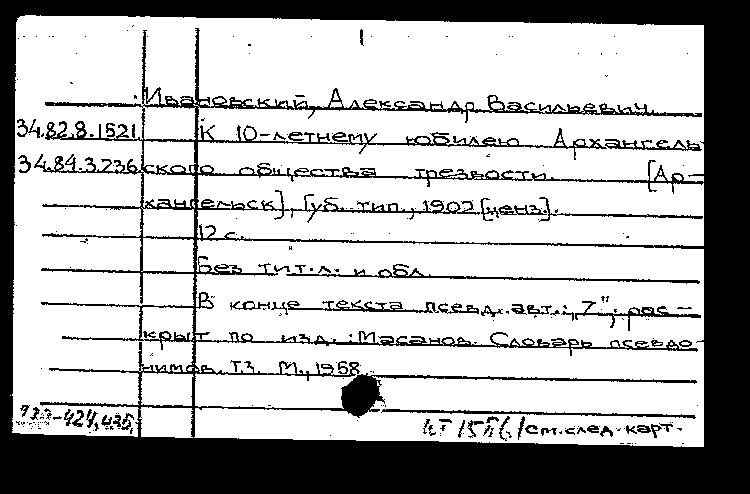 Ивановский, Александр Васильевич.
34.82.8.1521 К 10-летнему юбилею Архангель-
34.84.3.236 ского общества трезвости. [Ар-
хангельск], Губ. тип., 1902 [ценз].
12 с.
Без тит. л. и обл.
В конце текста псевд. авт.: „7"; рас-
крыт по изд.: Масанов. Словарь псевдо-
нимов. Т.3. М., 1958
-424,435 /см. след. карт.